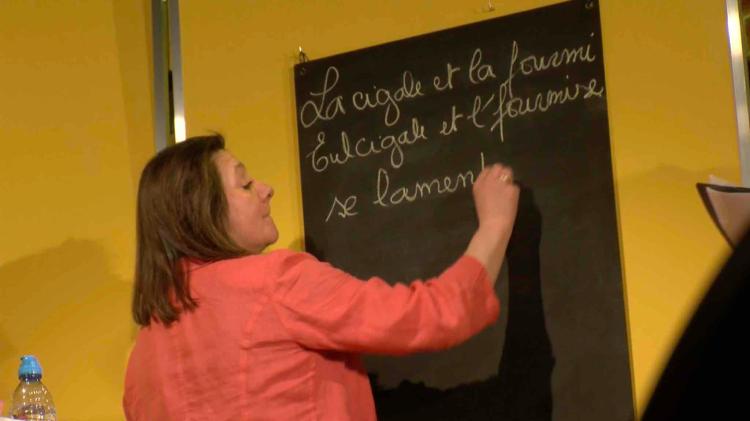 La cigale et la fourmi
Eul cigale et l'fourmise
se lament